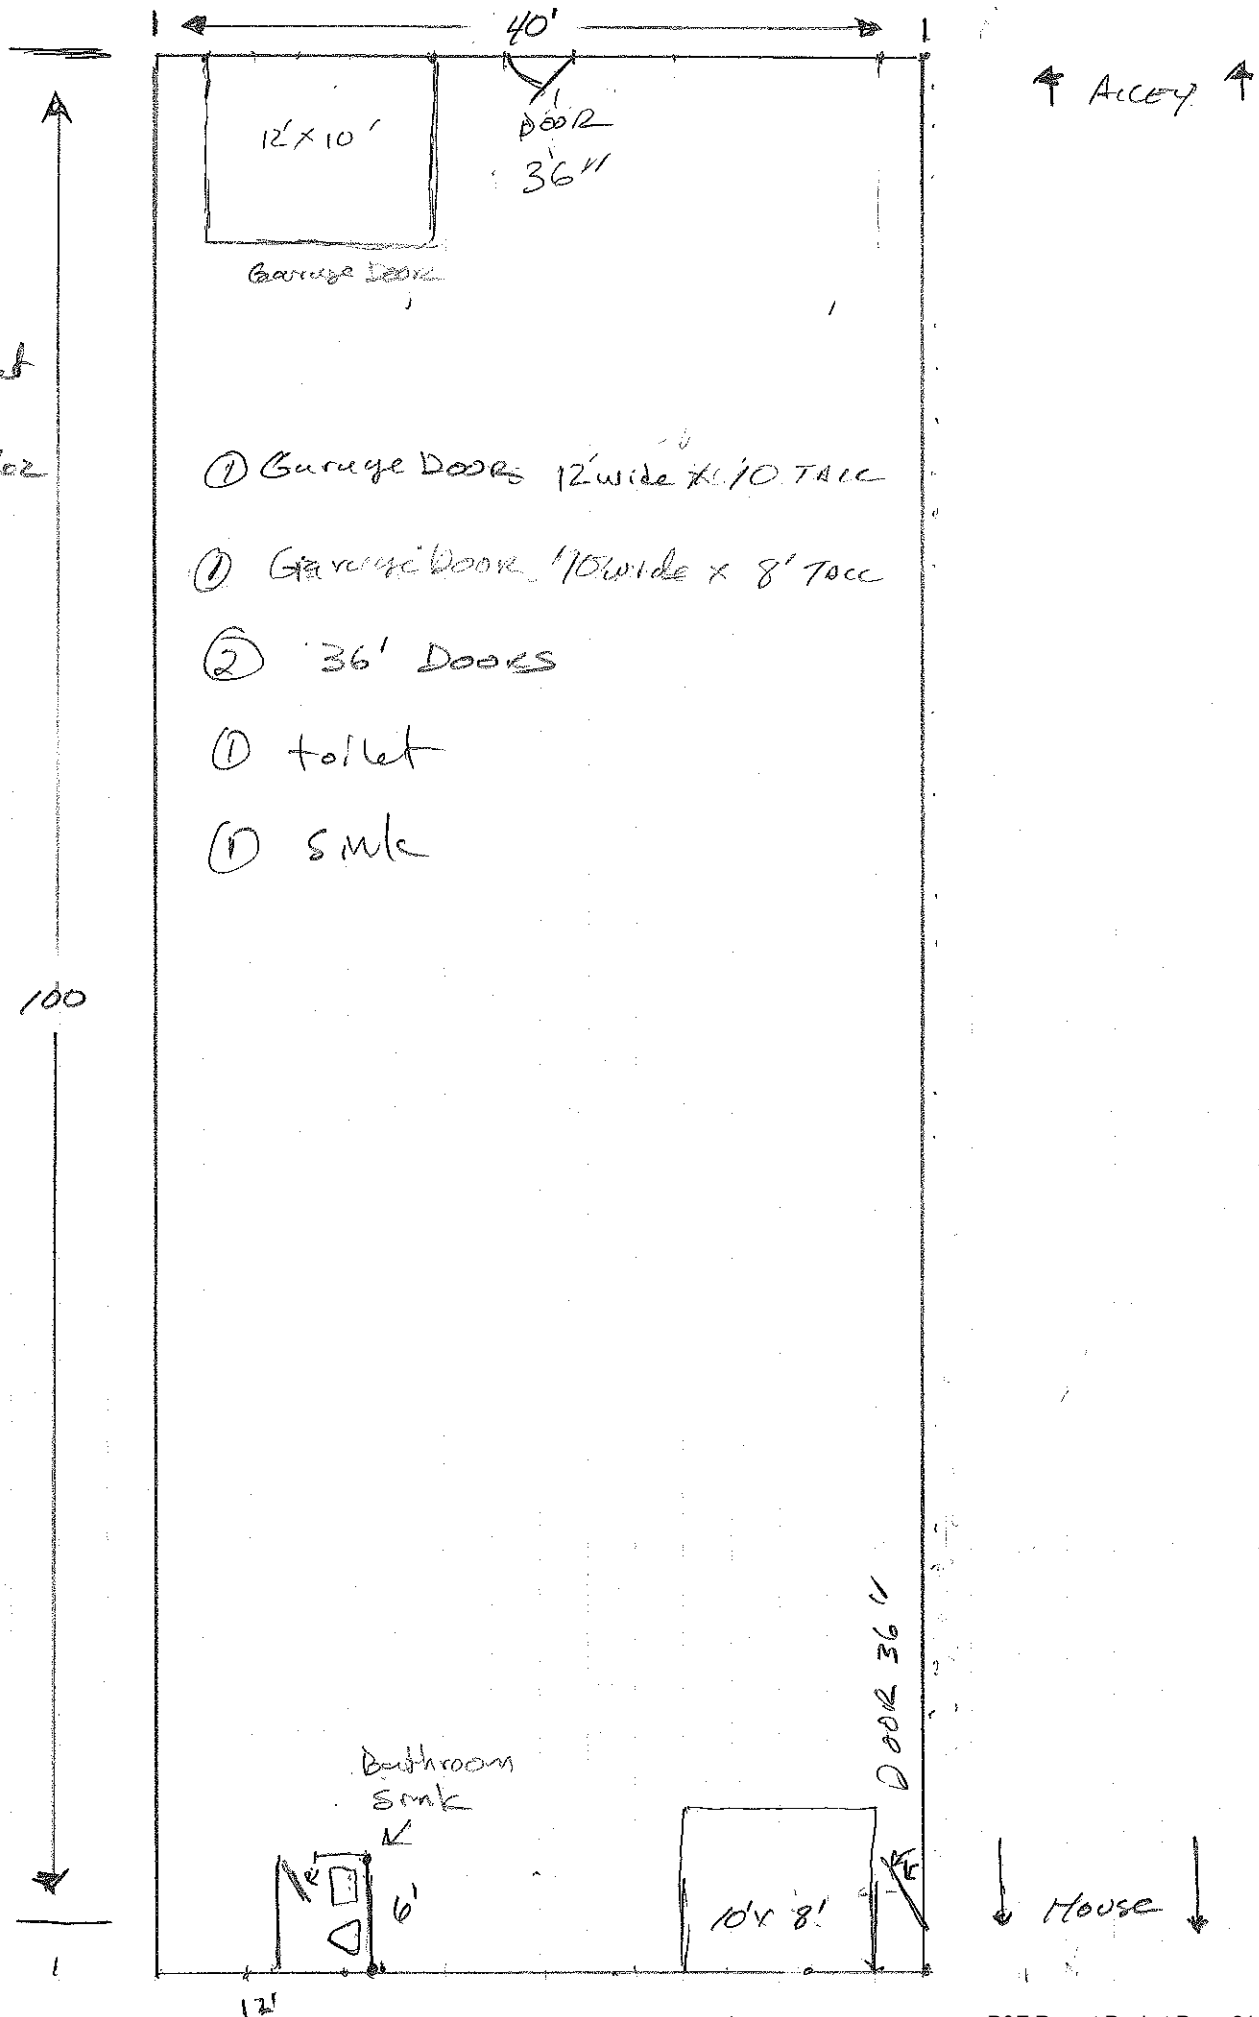 40'
↑ Alley ↑
12' x 10'
DOOR
36"
Garage Door
① Garage Doors 12' wide x 10 TALL
① Garage Door 10 wide x 8' TALL
② 36' DOORS
① toilet
① sink
100
DOOR 36"
Bathroom
Sink
6'
10' x 8'
House
12'